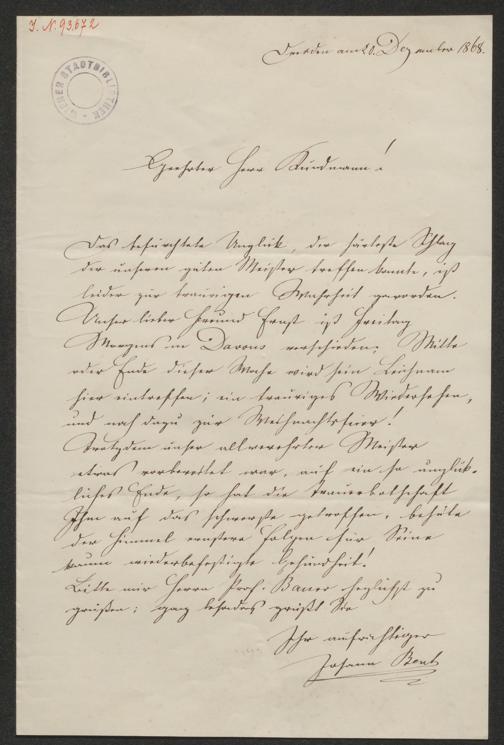 J. N. 93.672
WIENER STADTBIBLIOTHEK
Dresden am 20. Dezember 1868.
Geehrter Herr Kundmann!
Das befürchtete Unglück, der härteste Schlag
der unseren guten Meister treffen konnte, ist
leider zur traurigen Wahrheit geworden.
Unser lieber Freund Ernst ist Freitag
Morgens in Davons verschieden; Mitte
oder Ende dieser Woche wird sein Leichnam
hier eintreffen; ein trauriges Wiedersehen,
und noch dazu zur Weihnachtsfeier!
Trotzdem unser allverehrter Meister
etwas vorbereitet war, auf ein so unglük-
liches Ende, so hat die Trauerbotschaft
Ihn auf das schwerste getroffen, behüte
der Himmel ernstere Folgen für Seine
kaum wiederbefestigte Gesundheit!
Bitte mir Herrn Prof. Bauer herzlichst zu
grüßen; ganz besonders grüßt Sie
Ihr aufrichtiger
Johann Benk